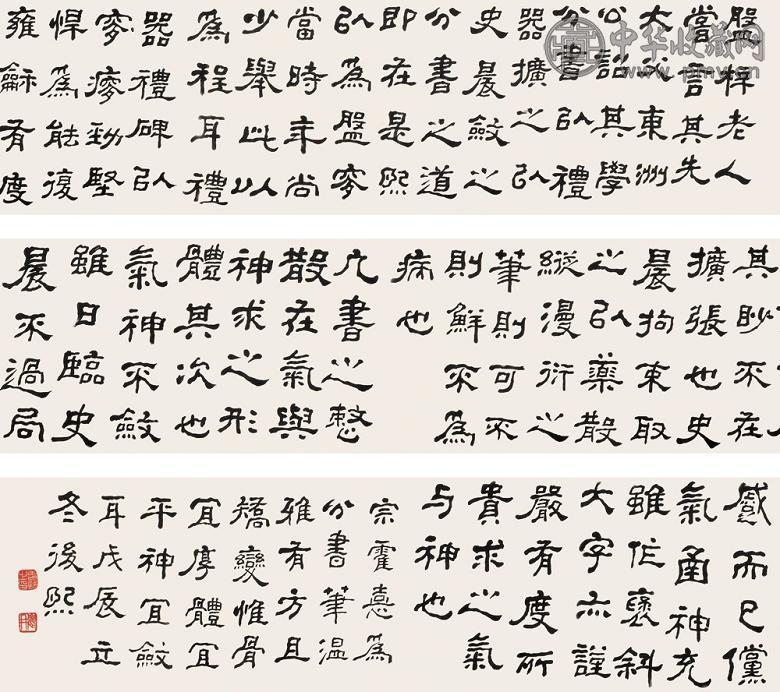 盤梓老人
當言其先
大東洲
公詔其學
分書㠯禮
器擴之㠯
史晨斂之
分書之道
即在是熙
㠯為盤
當時年尚
少舉此以
為程耳禮
器禮碑㠯
勁堅
悍為能復
雍龢有度
其眇不在
擴張也史
晨拘束取
之㠯藥散
縱漫衍之
筆則可不
則鮮不為
病也
凡書之整
散在氣與
神求之形
體其次也
氣神不斂
雖日臨史
晨不過局
慼而已儻
氣圅神充
雖作褒斜
大字亦謹
嚴有度所
貴求之氣
与神也
宗霍憙為
分書筆溫
雅有方且
矯變惟骨
宜厚體宜
平神宜斂
耳戊辰立
冬後熙
中华收藏网